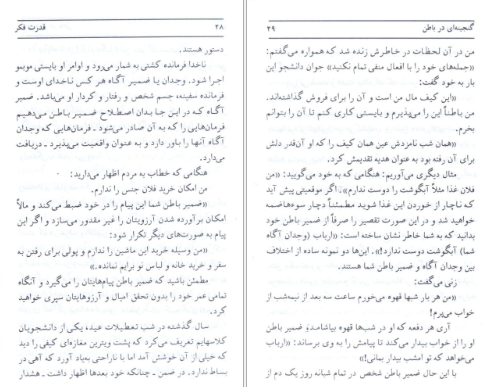 ۴۸ قدرت فکر
دستور هستند.
ناخدا فرمانده کشتی به شمار می‌رود و اوامر او بایستی موبمو
اجرا شود. وجدان یا ضمیر آگاه هر کس ناخدای اوست و
فرمانده سفینه، جسم شخص و رفتار و کردار او می‌باشد. ضمیر
آگاه که در این جا بدان اصطلاح ضمیر باطن می‌دهیم
فرمان‌هایی را که به آن صادر می‌شود ـ فرمان‌هایی که وجدان
آگاه آنها را باور دارد و به عنوان واقعیت می‌پذیرد ـ دریافت
می‌دارد.
هنگامی که خطاب به مردم اظهار می‌دارید:
من امکان خرید فلان جنس را ندارم.
«ضمیر باطن شما این پیام را در خود ضبط می‌کند و مآلاً
امکان برآورده شدن آرزویتان را غیر مقدور می‌سازد و اگر این
پیام به صورت‌های دیگر تکرار شود:
«من وسیله خرید این ماشین را ندارم و پولی برای رفتن به
سفر و خرید خانه و لباس نو برایم نمانده.»
مطمئن باشید که ضمیر باطن پیام‌هایتان را می‌گیرد و آنگاه
تمامی عمر خود را بدون تحقق امیال و آرزوهایتان سپری خواهید
کرد.
سال گذشته در شب تعطیلات عید، یکی از دانشجویان
کلاسهایم تعریف می‌کرد که پشت ویترین مغازه‌ای کیفی را دید
که خیلی از آن خوشش آمد اما با ناراحتی بیاد آورد که آهی در
بساط ندارد. در ضمن ـ چنانکه خود بعدها اظهار داشت ـ هشدار
گنجینه‌ای در باطن ۴۹
من در آن لحظات در خاطرش زنده شد که همواره می‌گفتم:
«جمله‌های خود را با افعال منفی تمام نکنید» جوان دانشجو این
بار به خود گفت:
«این کیف مال من است و آن را برای فروش گذاشته‌اند.
من باطناً این را می‌پذیرم و بایستی کاری کنم تا آن را بتوانم
بخرم.
«همان شب نامزدش عین همان کیف را که او آن‌قدر دلش
برای آن رفته بود به عنوان هدیه تقدیمش کرد.
مثال دیگری می‌آوریم: هنگامی که به خود می‌گوید: «من
فلان غذا مثلاً آبگوشت را دوست ندارم»، اگر موقعیتی پیش آید
که ناچار از خوردن این غذا شوید مطمئناً دچار سوءهاضمه
خواهید شد و در این صورت تقصیر را صرفاً از ضمیر باطن خود
بدانید که به شما خاطر نشان ساخته است: «ارباب (وجدان آگاه
شما) آبگوشت دوست ندارد!». این‌ها دو نمونه ساده از اختلاف
بین وجدان آگاه و ضمیر باطن شما هستند.
زنی می‌گفت:
«من هر بار شبها قهوه می‌خورم ساعت سه بعد از نیمه‌شب از
خواب می‌پرم!
آری هر دفعه که او در شب‌ها قهوه بیاشامد، ضمیر باطن
او را از خواب بیدار می‌کند تا پیامش را به وی برساند: «ارباب
می‌خواهد که تو امشب بیدار بمانی!»
با این حال ضمیر باطن شخص در تمامی شبانه روز یک دم از